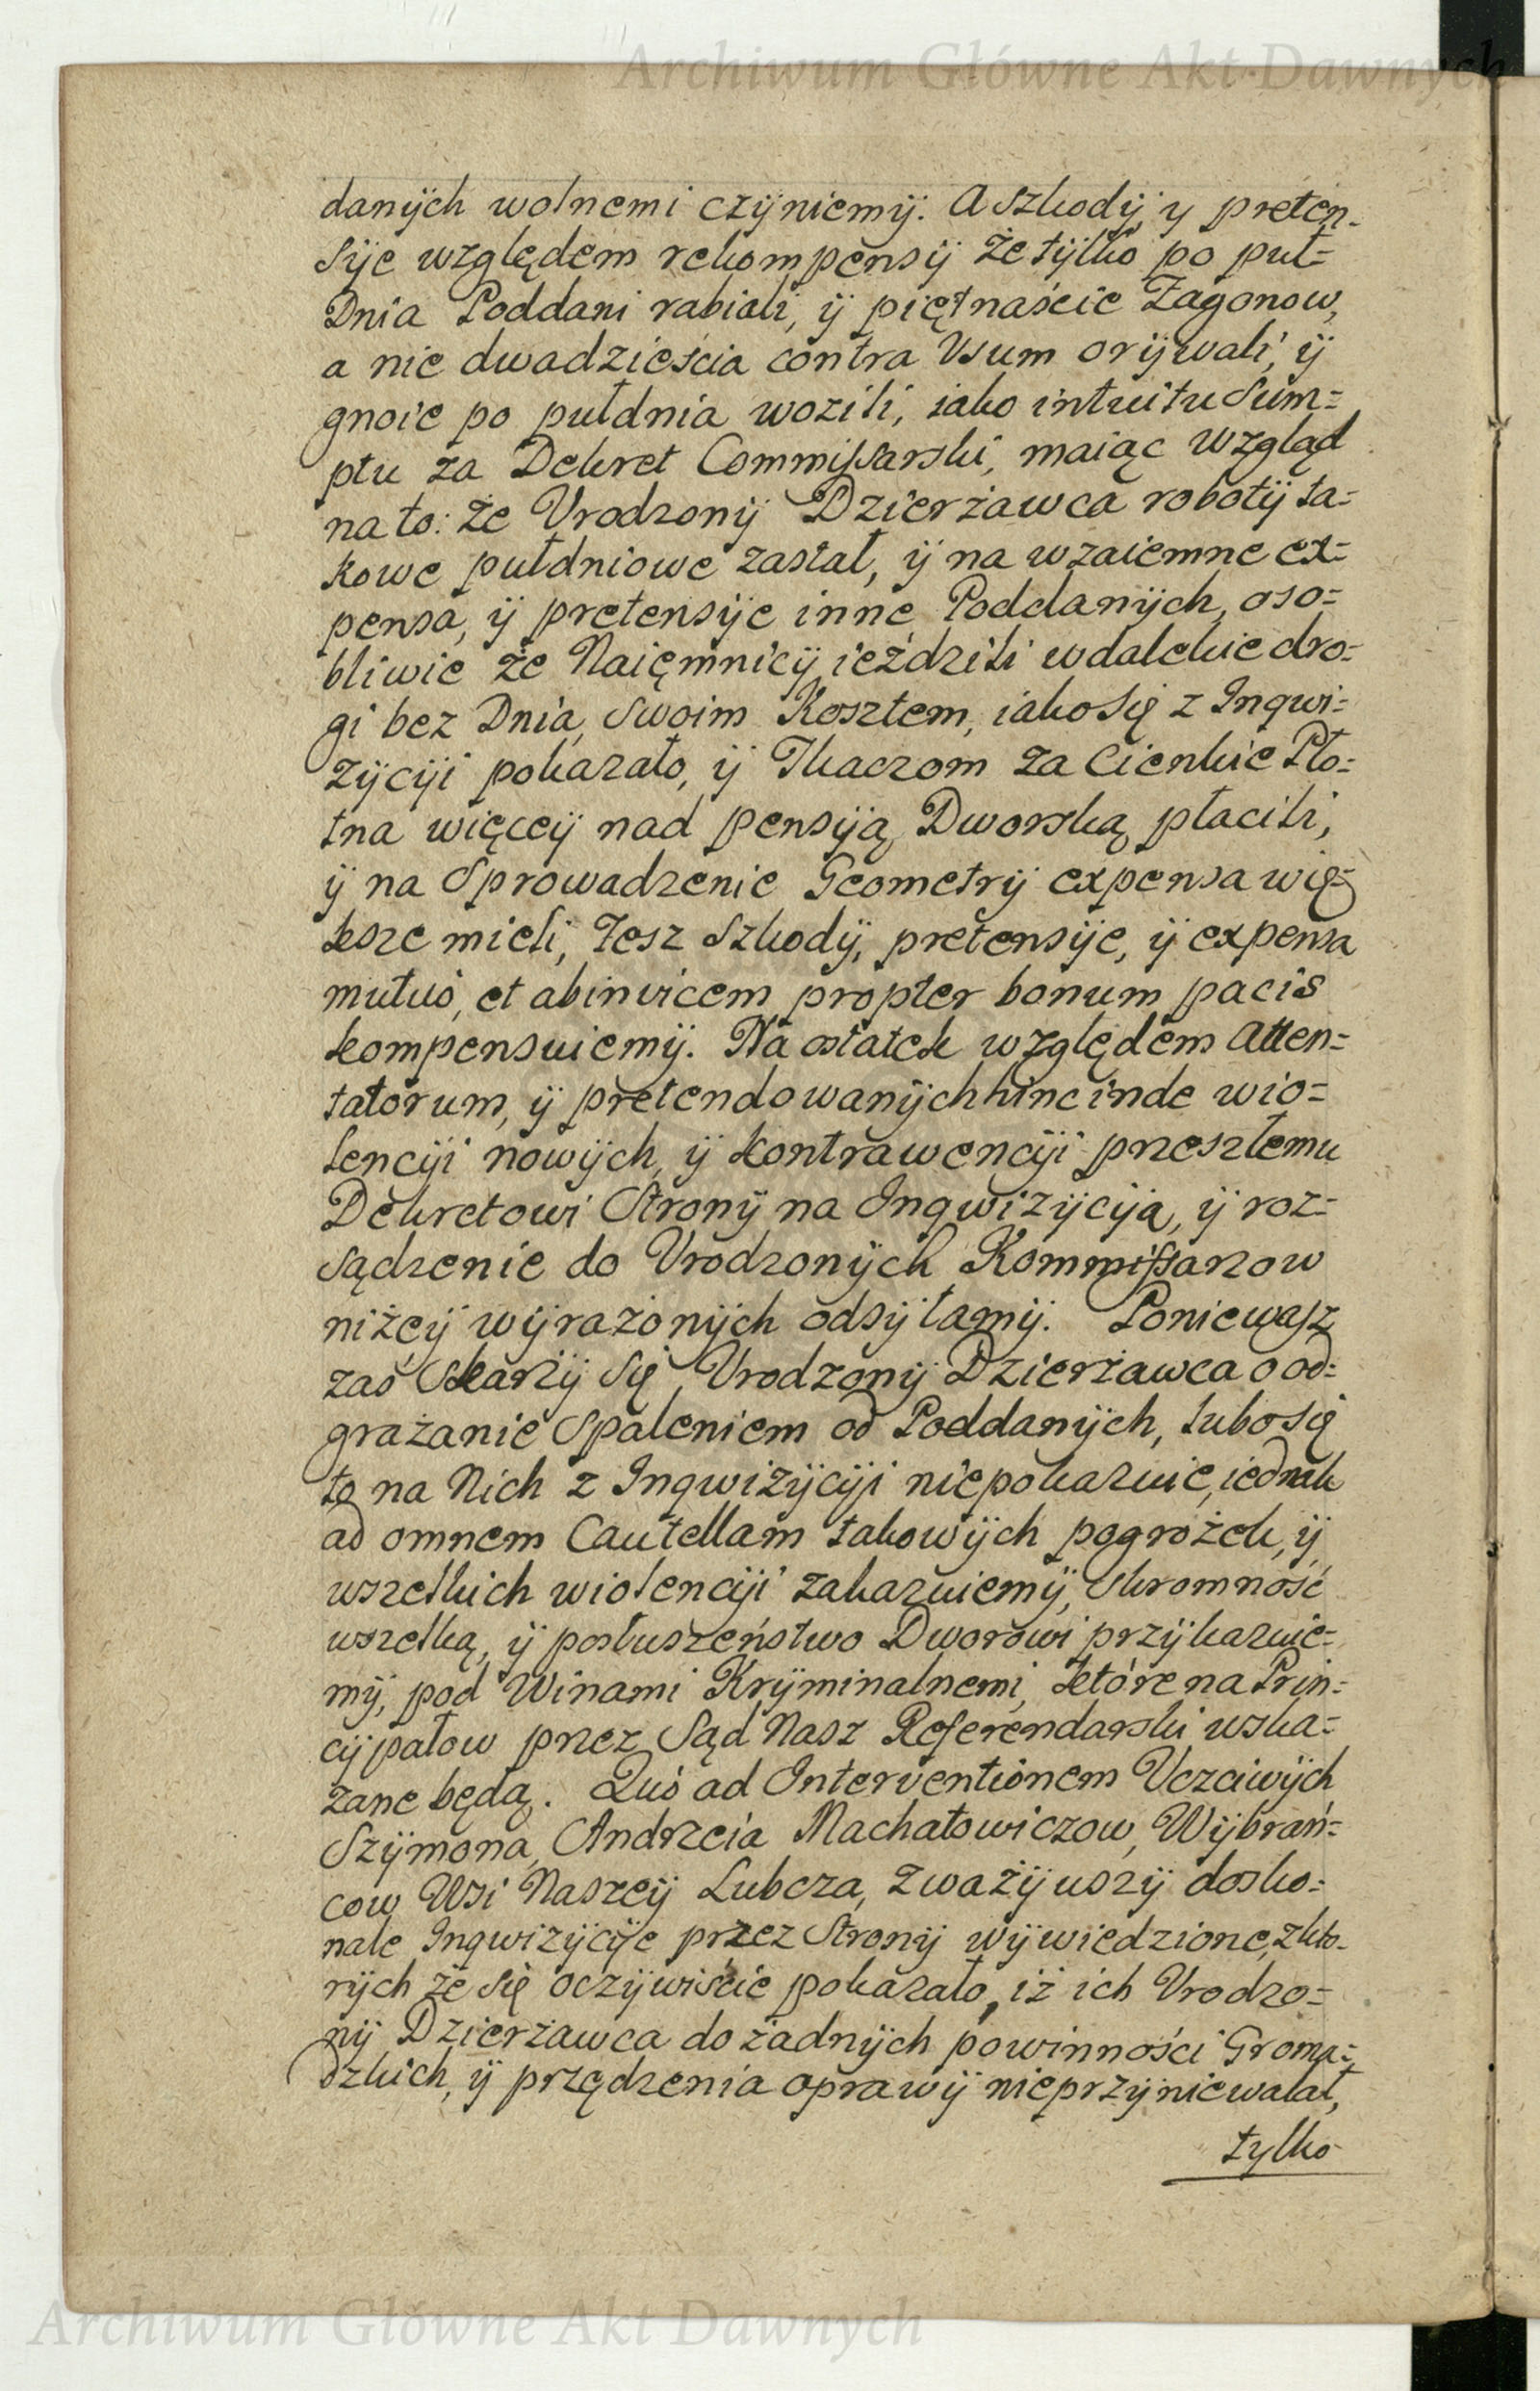 Archiwum Główne Akt Dawnych
danÿch wolnemi czÿniemÿ. A szkodÿ y preten-
sÿe względem rekompensÿ że tÿlko po puł=
Dnia Poddani rabiali, ÿ piętnaście Zagonow,
a nie dwadzieścia contra Usum orÿwali, ÿ
gnoie po pułdnia wozili, iako intuitu Sum=
ptu za Dekret Commissarski, maiąc wzgląd
na to: że Vrodzonÿ Dzierżawca robotÿ ta=
kowe pułdniowe zastał, ÿ na wzaiemne ex=
pensa, ÿ pretensÿe inne Poddanÿch, oso=
bliwie że Naięmnicÿ ieździli w dalekie dro=
gi bez Dnia, swoim Kosztem, iako się z Inqwi=
zÿcÿi pokazało, ÿ Tkaczom za Cienkie Pło=
tna więceÿ nad pensÿą Dworską płacili,
ÿ na Sprowadzenie Geometrÿ expensa wię=
ksze mieli, Tesz Szkodÿ, pretensÿe, ÿ expensa
mutuó, et abinvicem propter bonum pacis
kompensuiemÿ. Na ostatek względem Atten=
tatorum, ÿ pretendowanÿch hinc inde wio=
lencÿi nowÿch, ÿ kontrawencÿi przeszłemu
Dekretowi Stronÿ na Inqwizÿcÿą, ÿ roz=
sądzenie do Vrodzonÿch Kommissarzow
niżeÿ wÿrażonÿch odsÿłamÿ. Poniewasz
zaś Skarżÿ się Vrodzonÿ Dzierżawca o od=
grażanie Spaleniem od Poddanÿch, lubo się
to na Nich z Inqwizÿcÿi niepokazuie, iednak
ad omnem Cautellam takowÿch pogrożek, ÿ
wszelkich wiolencÿi zakazuiemÿ, Skromność
wszelką, ÿ posłuszeństwo Dworowi przÿkazuie=
mÿ, pod Winami Krÿminalnemi, które na Prin=
cÿpałow przez Sąd Nasz Referendarski wska=
zane będą. Quó ad Interventionem Uczciwÿch
Szÿmona, Andrzeia Machałowiczow, Wÿbrań=
cow Wsi Naszeÿ Lubcza, zważÿwszÿ dosko=
nale Inqwizÿcÿe przez Stronÿ wÿwiedzione, z któ-
rÿch że się oczÿwiście pokazało, iż ich Vrodzo=
nÿ Dzierżawca do żadnÿch powinności Groma=
dzkich, ÿ przędzenia oprawÿ nieprzÿniewalał,
tylko
Archiwum Główne Akt Dawnych